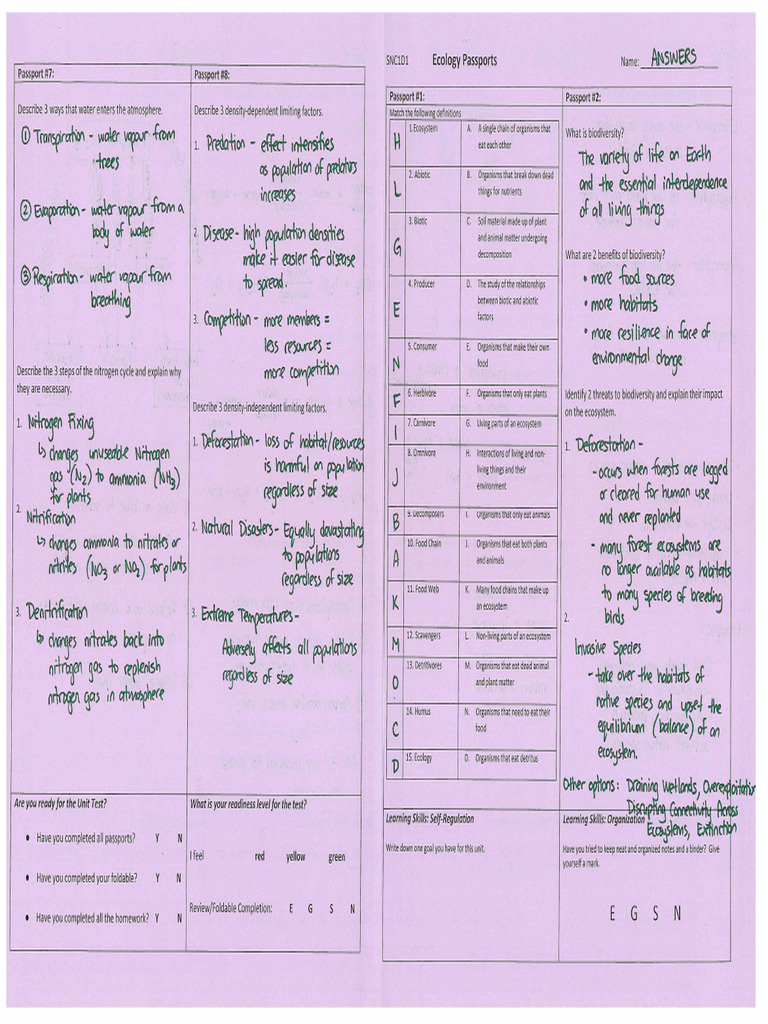 Passport #7:
Describe 3 ways that water enters the atmosphere.
① Transpiration - water vapour from
trees
② Evaporation - water vapour from a
body of water
③ Respiration - water vapour from
breathing
Describe the 3 steps of the nitrogen cycle and explain why
they are necessary.
1. Nitrogen Fixing
↳ changes unuseable Nitrogen
gas (N₂) to ammonia (NH₃)
for plants
2.
Nitrification
↳ changes ammonia to nitrates or
nitrites (NO₃ or NO₂) for plants
3. Denitrification
↳ changes nitrates back into
nitrogen gas to replenish
nitrogen gas in atmosphere
Are you ready for the Unit Test?
• Have you completed all passports? Y N
• Have you completed your foldable? Y N
• Have you completed all the homework? Y N
Passport #8:
Describe 3 density-dependent limiting factors.
1. Predation - effect intensifies
as population of predators
increases
2. Disease - high population densities
make it easier for disease
to spread.
3. Competition - more members =
less resources =
more competition
Describe 3 density-independent limiting factors.
1. Deforestation - loss of habitat/resources
is harmful on population
regardless of size
2. Natural Disasters - Equally devastating
to populations
regardless of size
3. Extreme Temperatures -
Adversely affects all populations
regardless of size
What is your readiness level for the test?
I feel red yellow green
Review/Foldable Completion: E G S N
SNC1D1 Ecology Passports Name: ANSWERS
Passport #1:
Match the following definitions
H 1. Ecosystem A. A single chain of organisms that
eat each other
L 2. Abiotic B. Organisms that break down dead
things for nutrients
G 3. Biotic C. Soil material made up of plant
and animal matter undergoing
decomposition
E 4. Producer D. The study of the relationships
between biotic and abiotic
factors
N 5. Consumer E. Organisms that make their own
food
F 6. Herbivore F. Organisms that only eat plants
I 7. Carnivore G. Living parts of an ecosystem
J 8. Omnivore H. Interactions of living and non-
living things and their
environment
B 9. Decomposers I. Organisms that only eat animals
A 10. Food Chain J. Organisms that eat both plants
and animals
K 11. Food Web K. Many food chains that make up
an ecosystem
M 12. Scavengers L. Non-living parts of an ecosystem
O 13. Detritivores M. Organisms that eat dead animal
and plant matter
C 14. Humus N. Organisms that need to eat their
food
D 15. Ecology O. Organisms that eat detritus
Learning Skills: Self-Regulation
Write down one goal you have for this unit.
Passport #2:
What is biodiversity?
The variety of life on Earth
and the essential interdependence
of all living things
What are 2 benefits of biodiversity?
• more food sources
• more habitats
• more resilience in face of
environmental change
Identify 2 threats to biodiversity and explain their impact
on the ecosystem.
1. Deforestation -
- occurs when forests are logged
or cleared for human use
and never replanted
- many forest ecosystems are
no longer available as habitats
to many species of breeding
birds
2.
Invasive Species
- take over the habitats of
native species and upset the
equilibrium (balance) of an
ecosystem.
Other options: Draining Wetlands, Overexploitation
Disrupting Connectivity Across
Ecosystems, Extinction
Learning Skills: Organization
Have you tried to keep neat and organized notes and a binder? Give
yourself a mark.
E G S N